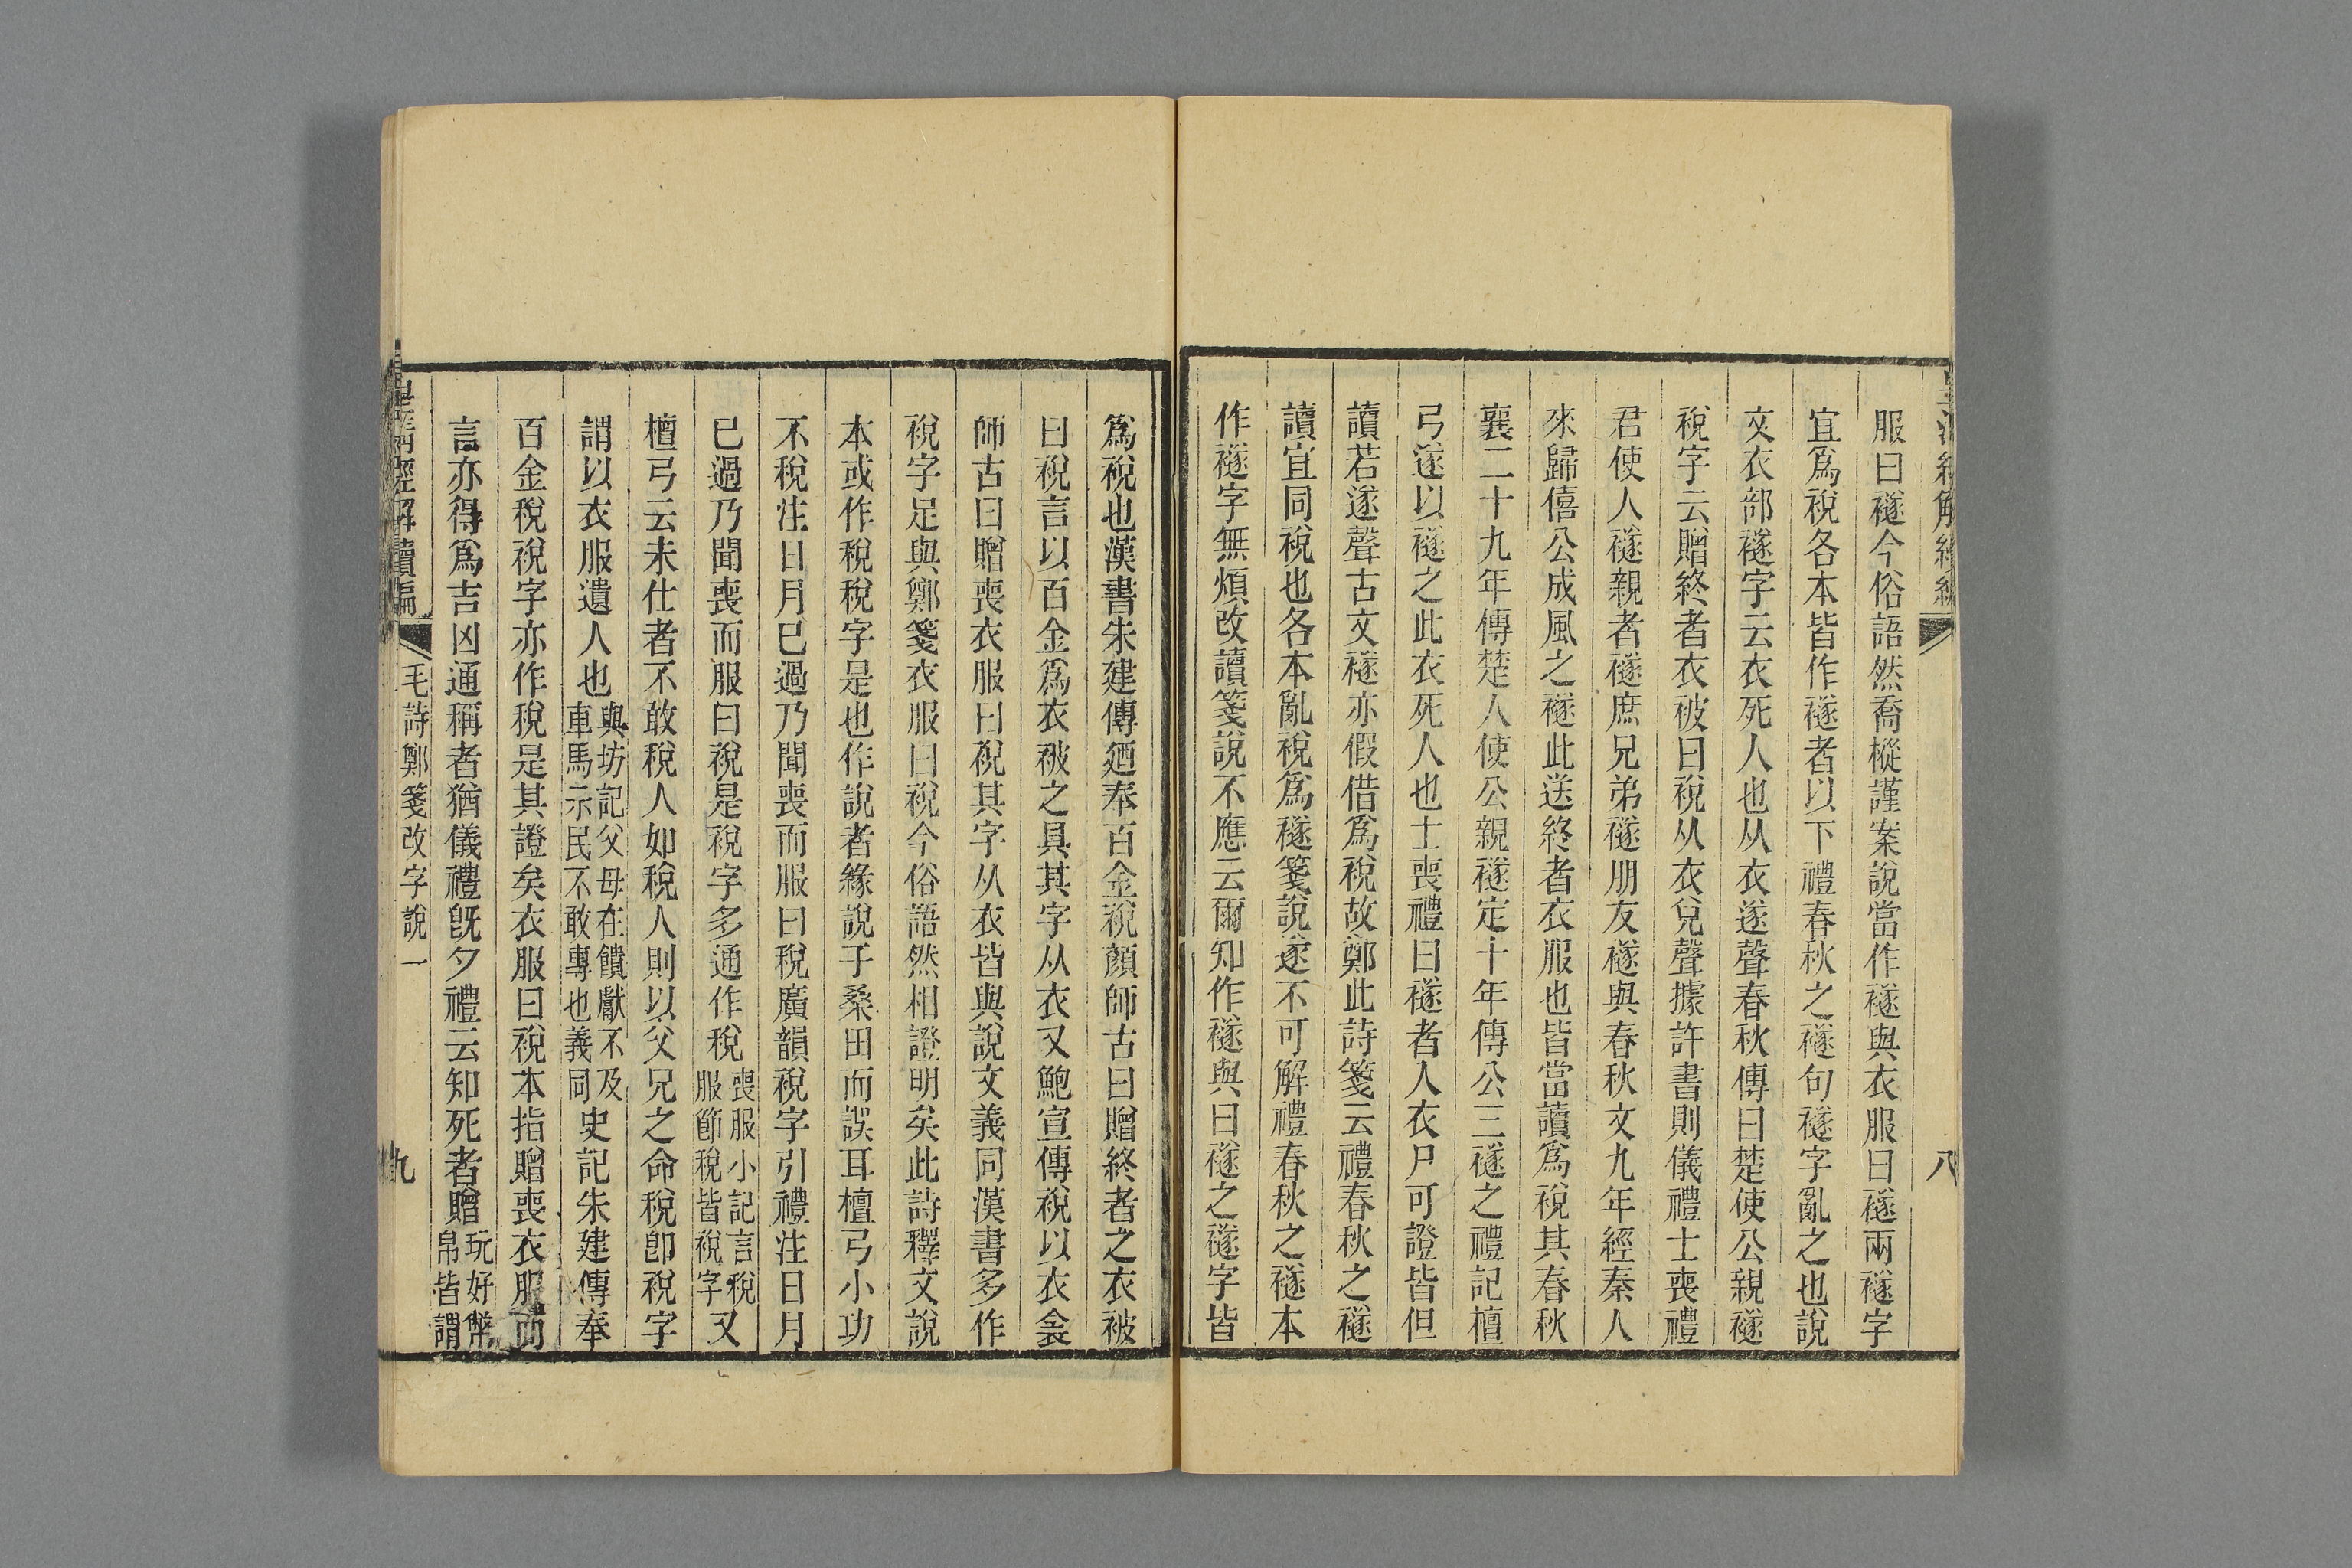 服曰襚今俗語然喬樅謹案說當作襚與衣服曰襚兩襚字
宜爲裞各本皆作襚者以下禮春秋之襚句襚字亂之也說
文衣部襚字云衣死人也从衣遂聲春秋傳曰楚使公親襚
裞字云贈終者衣被曰裞从衣兌聲據許書則儀禮士喪禮
君使人襚親者襚庶兄弟襚朋友襚與春秋文九年經秦人
來歸僖公成風之襚此送終者衣服也皆當讀爲裞其春秋
襄二十九年傳楚人使公親襚定十年傳公三襚之禮記檀
弓遂以襚之此衣死人也士喪禮曰襚者入衣尸可證皆但
讀若遂聲古文襚亦假借爲裞故鄭此詩箋云禮春秋之襚
讀宜同裞也各本亂裞爲襚箋說遂不可解禮春秋之襚本
作襚字無煩改讀箋說不應云爾知作襚與曰襚之襚字皆
八
爲裞也漢書朱建傳廼奉百金裞顏師古曰贈終者之衣被
曰裞言以百金爲衣被之具其字从衣又鮑宣傳裞以衣衾
師古曰贈喪衣服曰裞其字从衣皆與說文義同漢書多作
裞字足與鄭箋衣服曰裞今俗語然相證明矣此詩釋文說
本或作稅稅字是也作說者緣說于桑田而誤耳檀弓小功
不稅注日月已過乃聞喪而服曰稅廣韻裞字引禮注日月
已過乃聞喪而服曰裞是裞字多通作稅喪服小記言稅服節稅皆裞字又
檀弓云未仕者不敢稅人如稅人則以父兄之命稅卽裞字
謂以衣服遺人也與坊記父母在饋獻不及車馬示民不敢專也義同史記朱建傳奉
百金稅裞字亦作稅是其證矣衣服曰裞本指贈喪衣服而
言亦得爲吉凶通稱者猶儀禮旣夕禮云知死者贈玩好幣帛皆謂
毛詩鄭箋改字說一
九